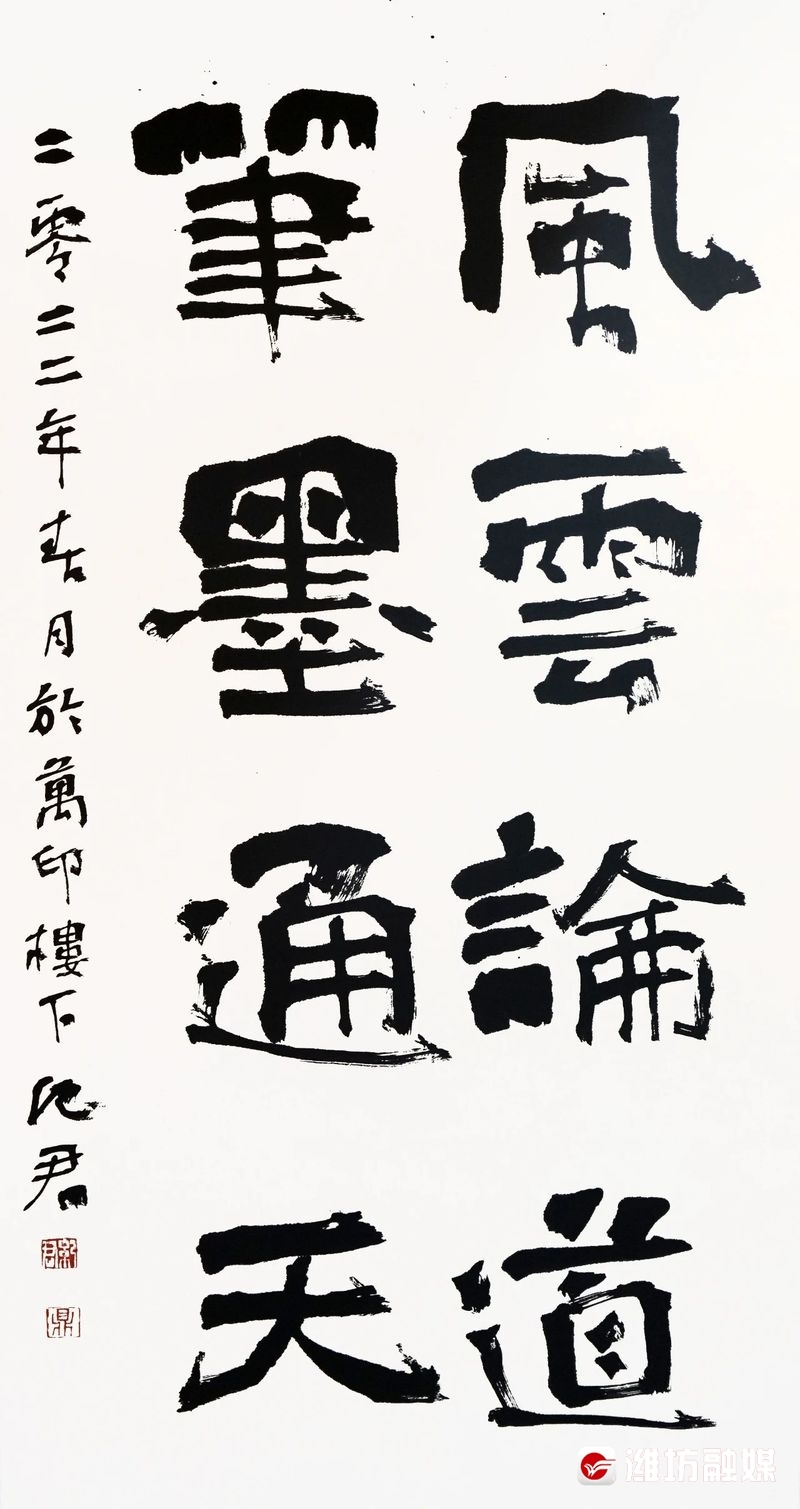 風雲論道
筆墨通天
二零二二年春月於萬印樓下紀君
鼎
潍坊融媒